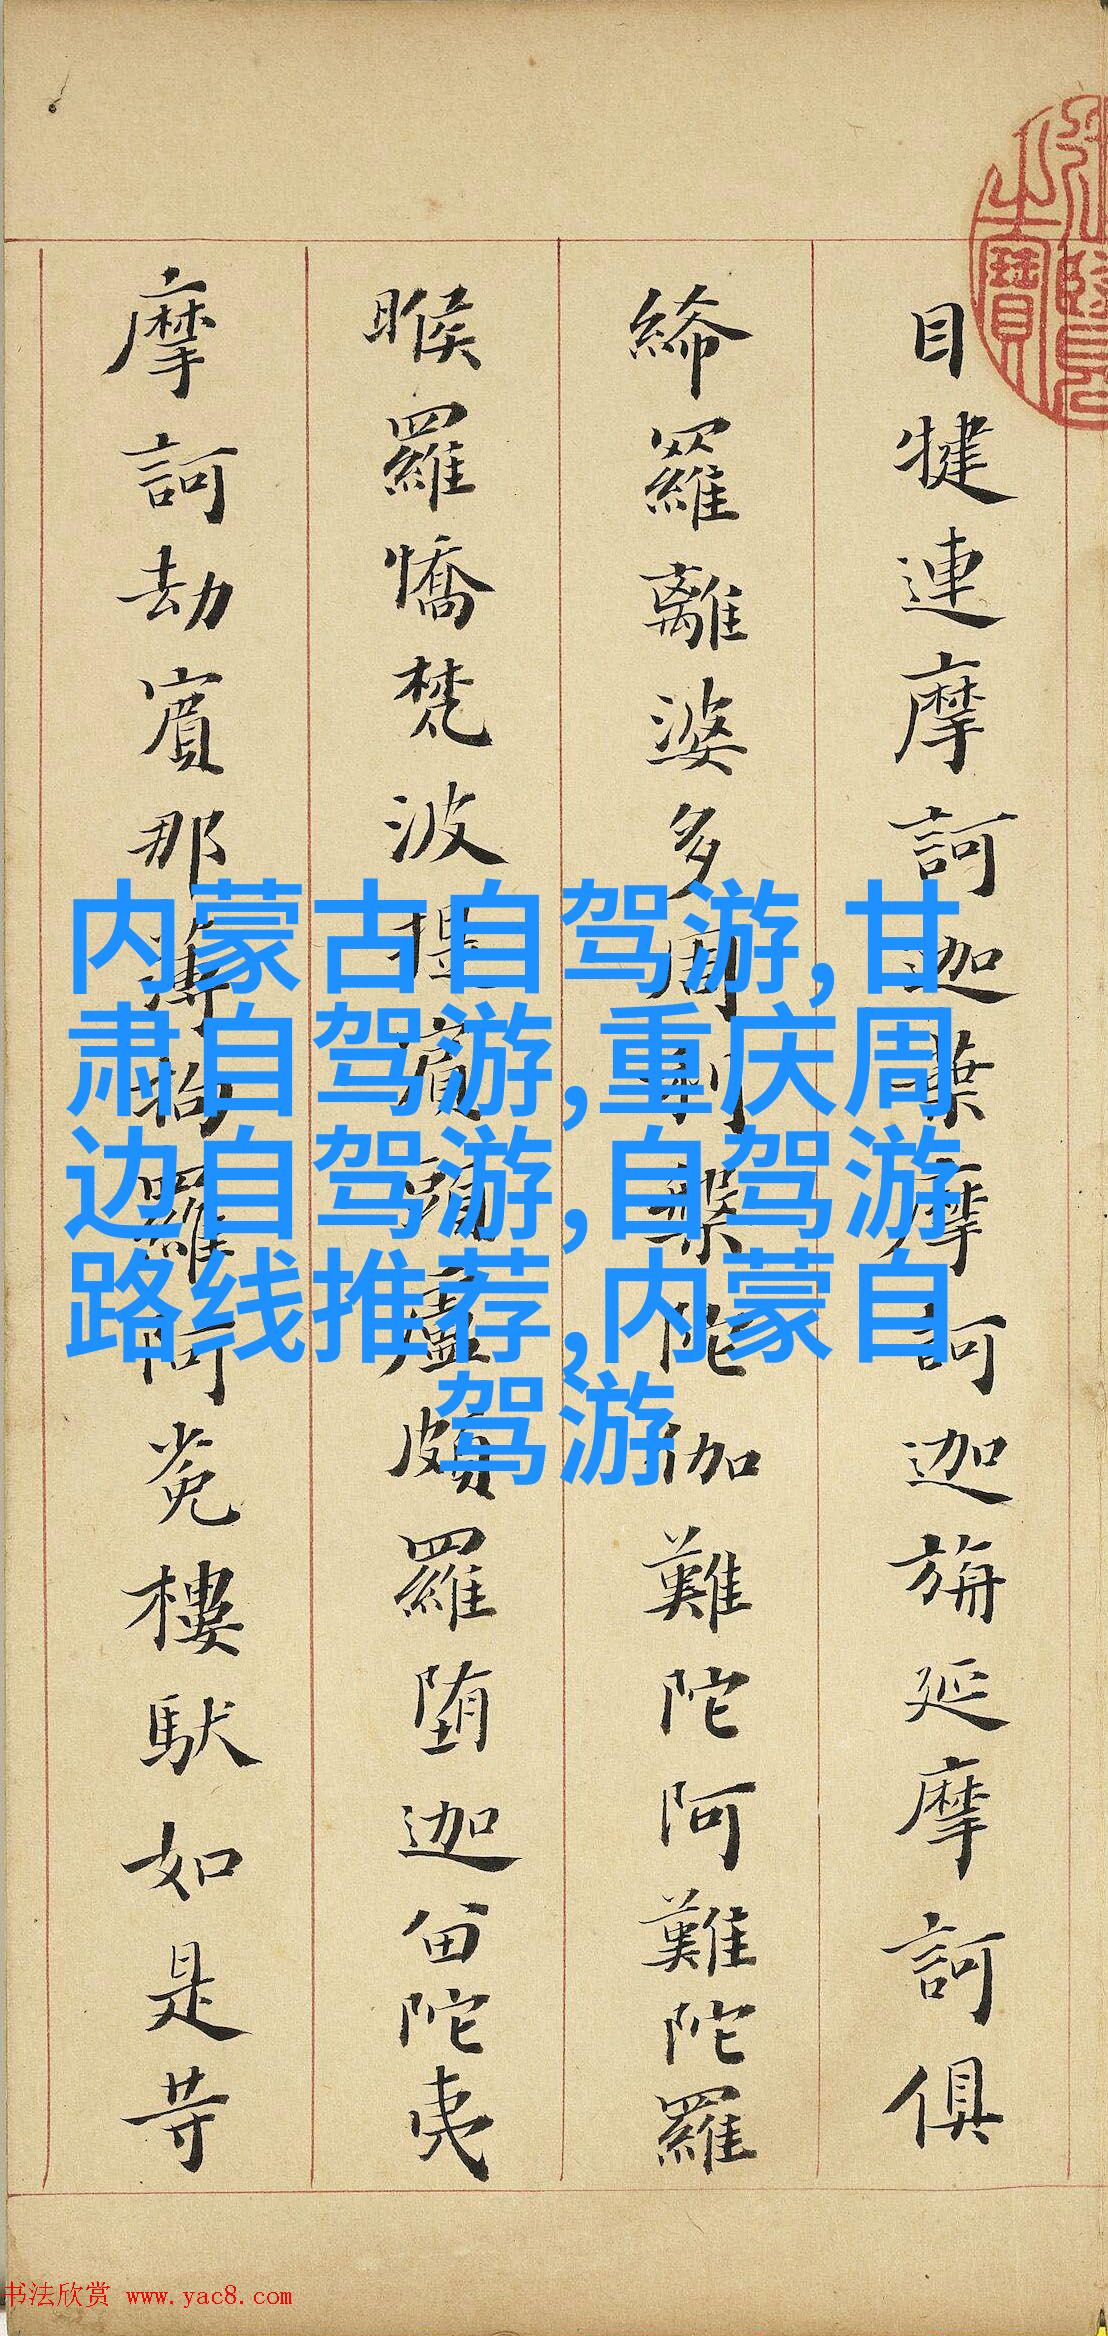 目犍連摩訶迦葉摩訶迦旃延摩訶俱
絺羅離婆多周利槃陀伽難陀阿難陀羅
睺羅憍梵波提賓頭盧頗羅堕迦畄陀夷
摩訶劫賓那薄拘羅阿㝹樓馱如是䓁
之寶
内蒙古自驾游,甘
肃自驾游,重庆周
边自驾游,自驾游
路线推荐,内蒙自
驾游
书法欣赏 www.yac8.com